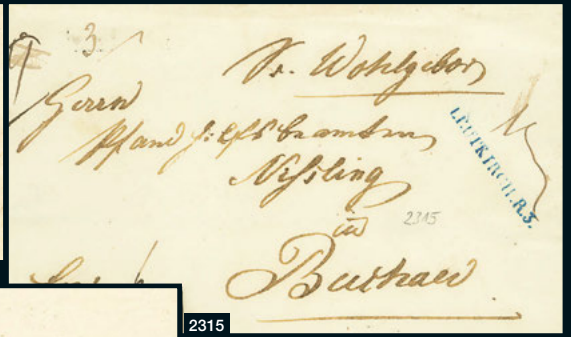 3
Sr. Wohlgebor
Herrn
Pfandhilfsbeamten
Nessling
LEUTKIRCH.R.3.
2315
in
Buchau
2315